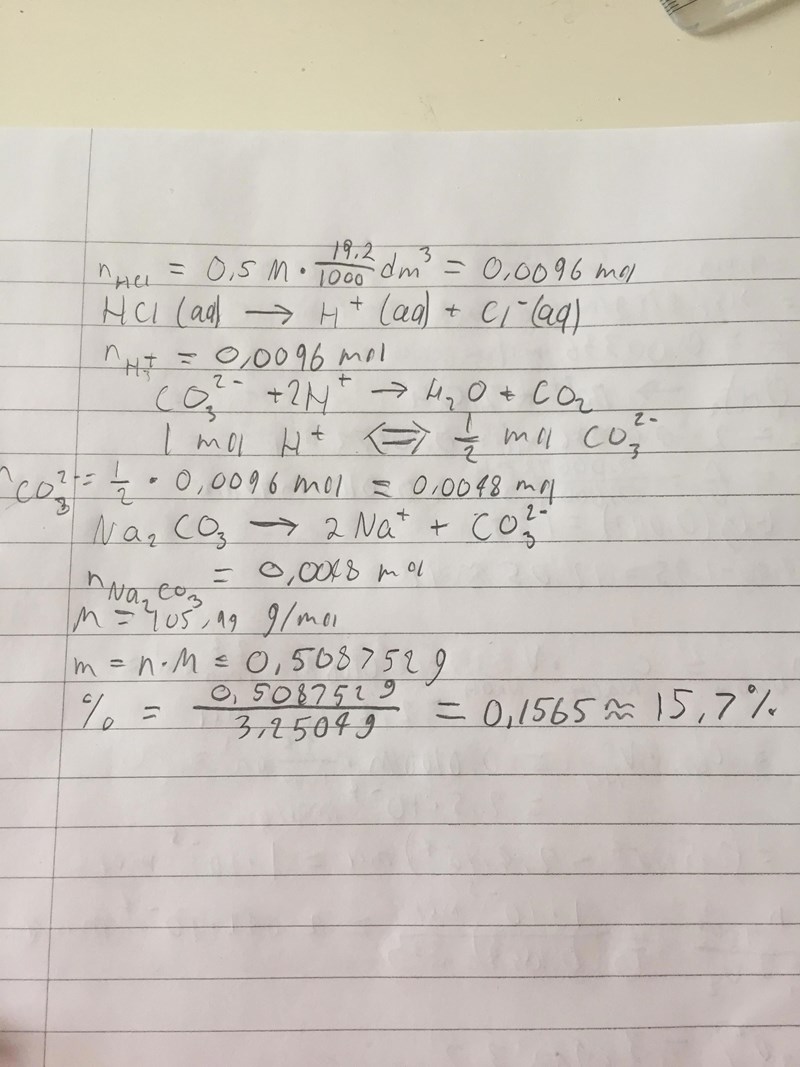 n_HCl = 0,5 M · 19,2/1000 dm³ = 0,0096 mol
HCl (aq) → H⁺ (aq) + Cl⁻ (aq)
n_H⁺ = 0,0096 mol
CO₃²⁻ + 2H⁺ → H₂O + CO₂
1 mol H⁺ ⇔ 1/2 mol CO₃²⁻
n_CO₃²⁻ = 1/2 · 0,0096 mol = 0,0048 mol
Na₂CO₃ → 2Na⁺ + CO₃²⁻
n_Na₂CO₃ = 0,0048 mol
M = 105,99 g/mol
m = n·M = 0,508752 g
% = 0,508752g/3,2504g = 0,1565 ≈ 15,7%